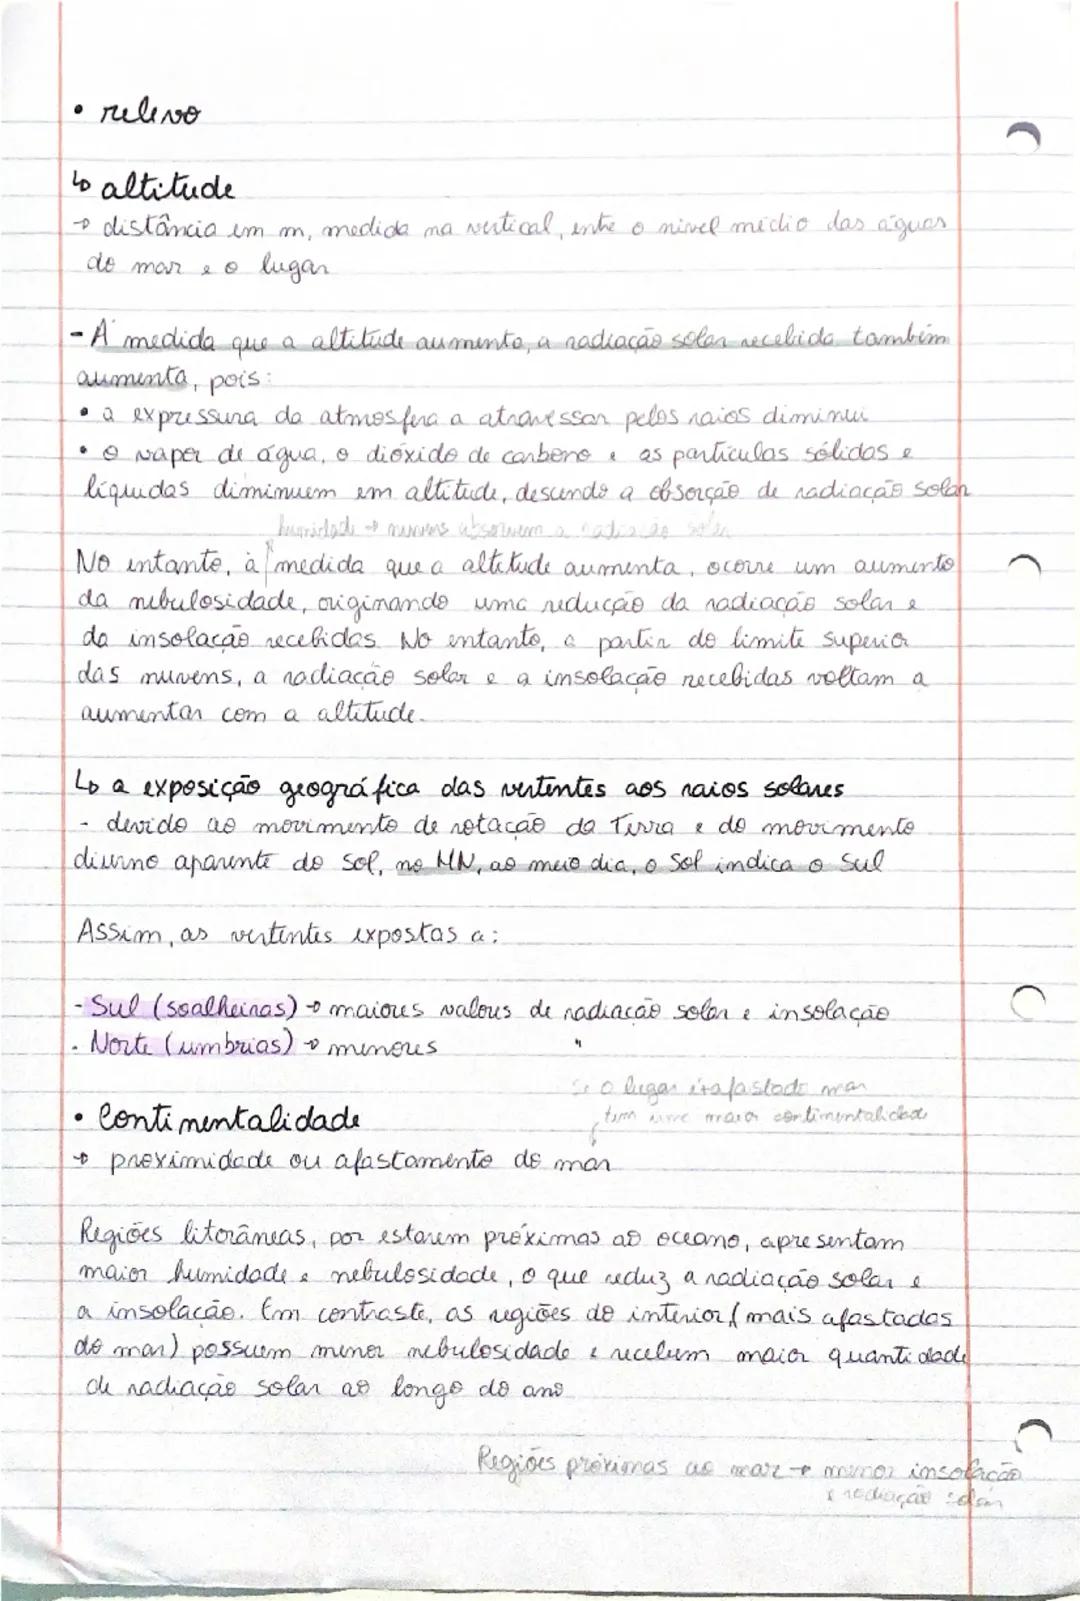 • relevo
↳ altitude
→ distância em m, medida na vertical, entre o nível médio das águas
do mar e o lugar
- À medida que a altitude aumenta, a radiação solar recebida também
aumenta, pois:
• a expressura da atmosfera a atravessar pelos raios diminui
• o vapor de água, o dióxido de carbono e as partículas sólidas e
líquidas diminuem em altitude, descendo a absorção de radiação solar
humidade → nuvens absorvem a radiação solar
No entanto, à medida que a altitude aumenta, ocorre um aumento
da nebulosidade, originando uma redução da radiação solar e
da insolação recebidas. No entanto, a partir do limite superior
das nuvens, a radiação solar e a insolação recebidas voltam a
aumentar com a altitude.
↳ a exposição geográfica das vertentes aos raios solares
- devido ao movimento de rotação da Terra e do movimento
diurno aparente do Sol, no HN, ao meio dia, o Sol indica o Sul
Assim, as vertentes expostas a:
- Sul (soalheiras) → maiores valores de radiação solar e insolação
- Norte (umbrias) → menores "
Se o lugar afastado mar
tem uma maior continentalidade
• Continentalidade
→ proximidade ou afastamento do mar
Regiões litorâneas, por estarem próximas ao oceano, apresentam
maior humidade e nebulosidade, o que reduz a radiação solar e
a insolação. Em contraste, as regiões do interior (mais afastadas
do mar) possuem menor nebulosidade e recebem maior quantidade
de radiação solar ao longo do ano
Regiões próximas ao mar → menor insolação
e radiação solar